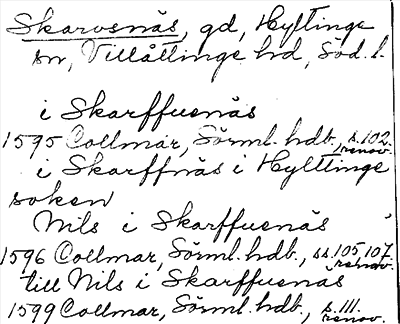 Skarvsnäs, gd, Hyltinge
sn, Villåttinge hd, Söd. l.
i Skarffuenäs
1595 Collmar, Sörml. hdb., s. 102. renov.
i Skarffnäs i Hylttinge
soken
Nils i Skarffuenäs
1596 Collmar, Sörml. hdb., ss. 105, 107. renov.
till Nils i Skarffuenäs
1599 Collmar, Sörml. hdb., s. 111. renov.